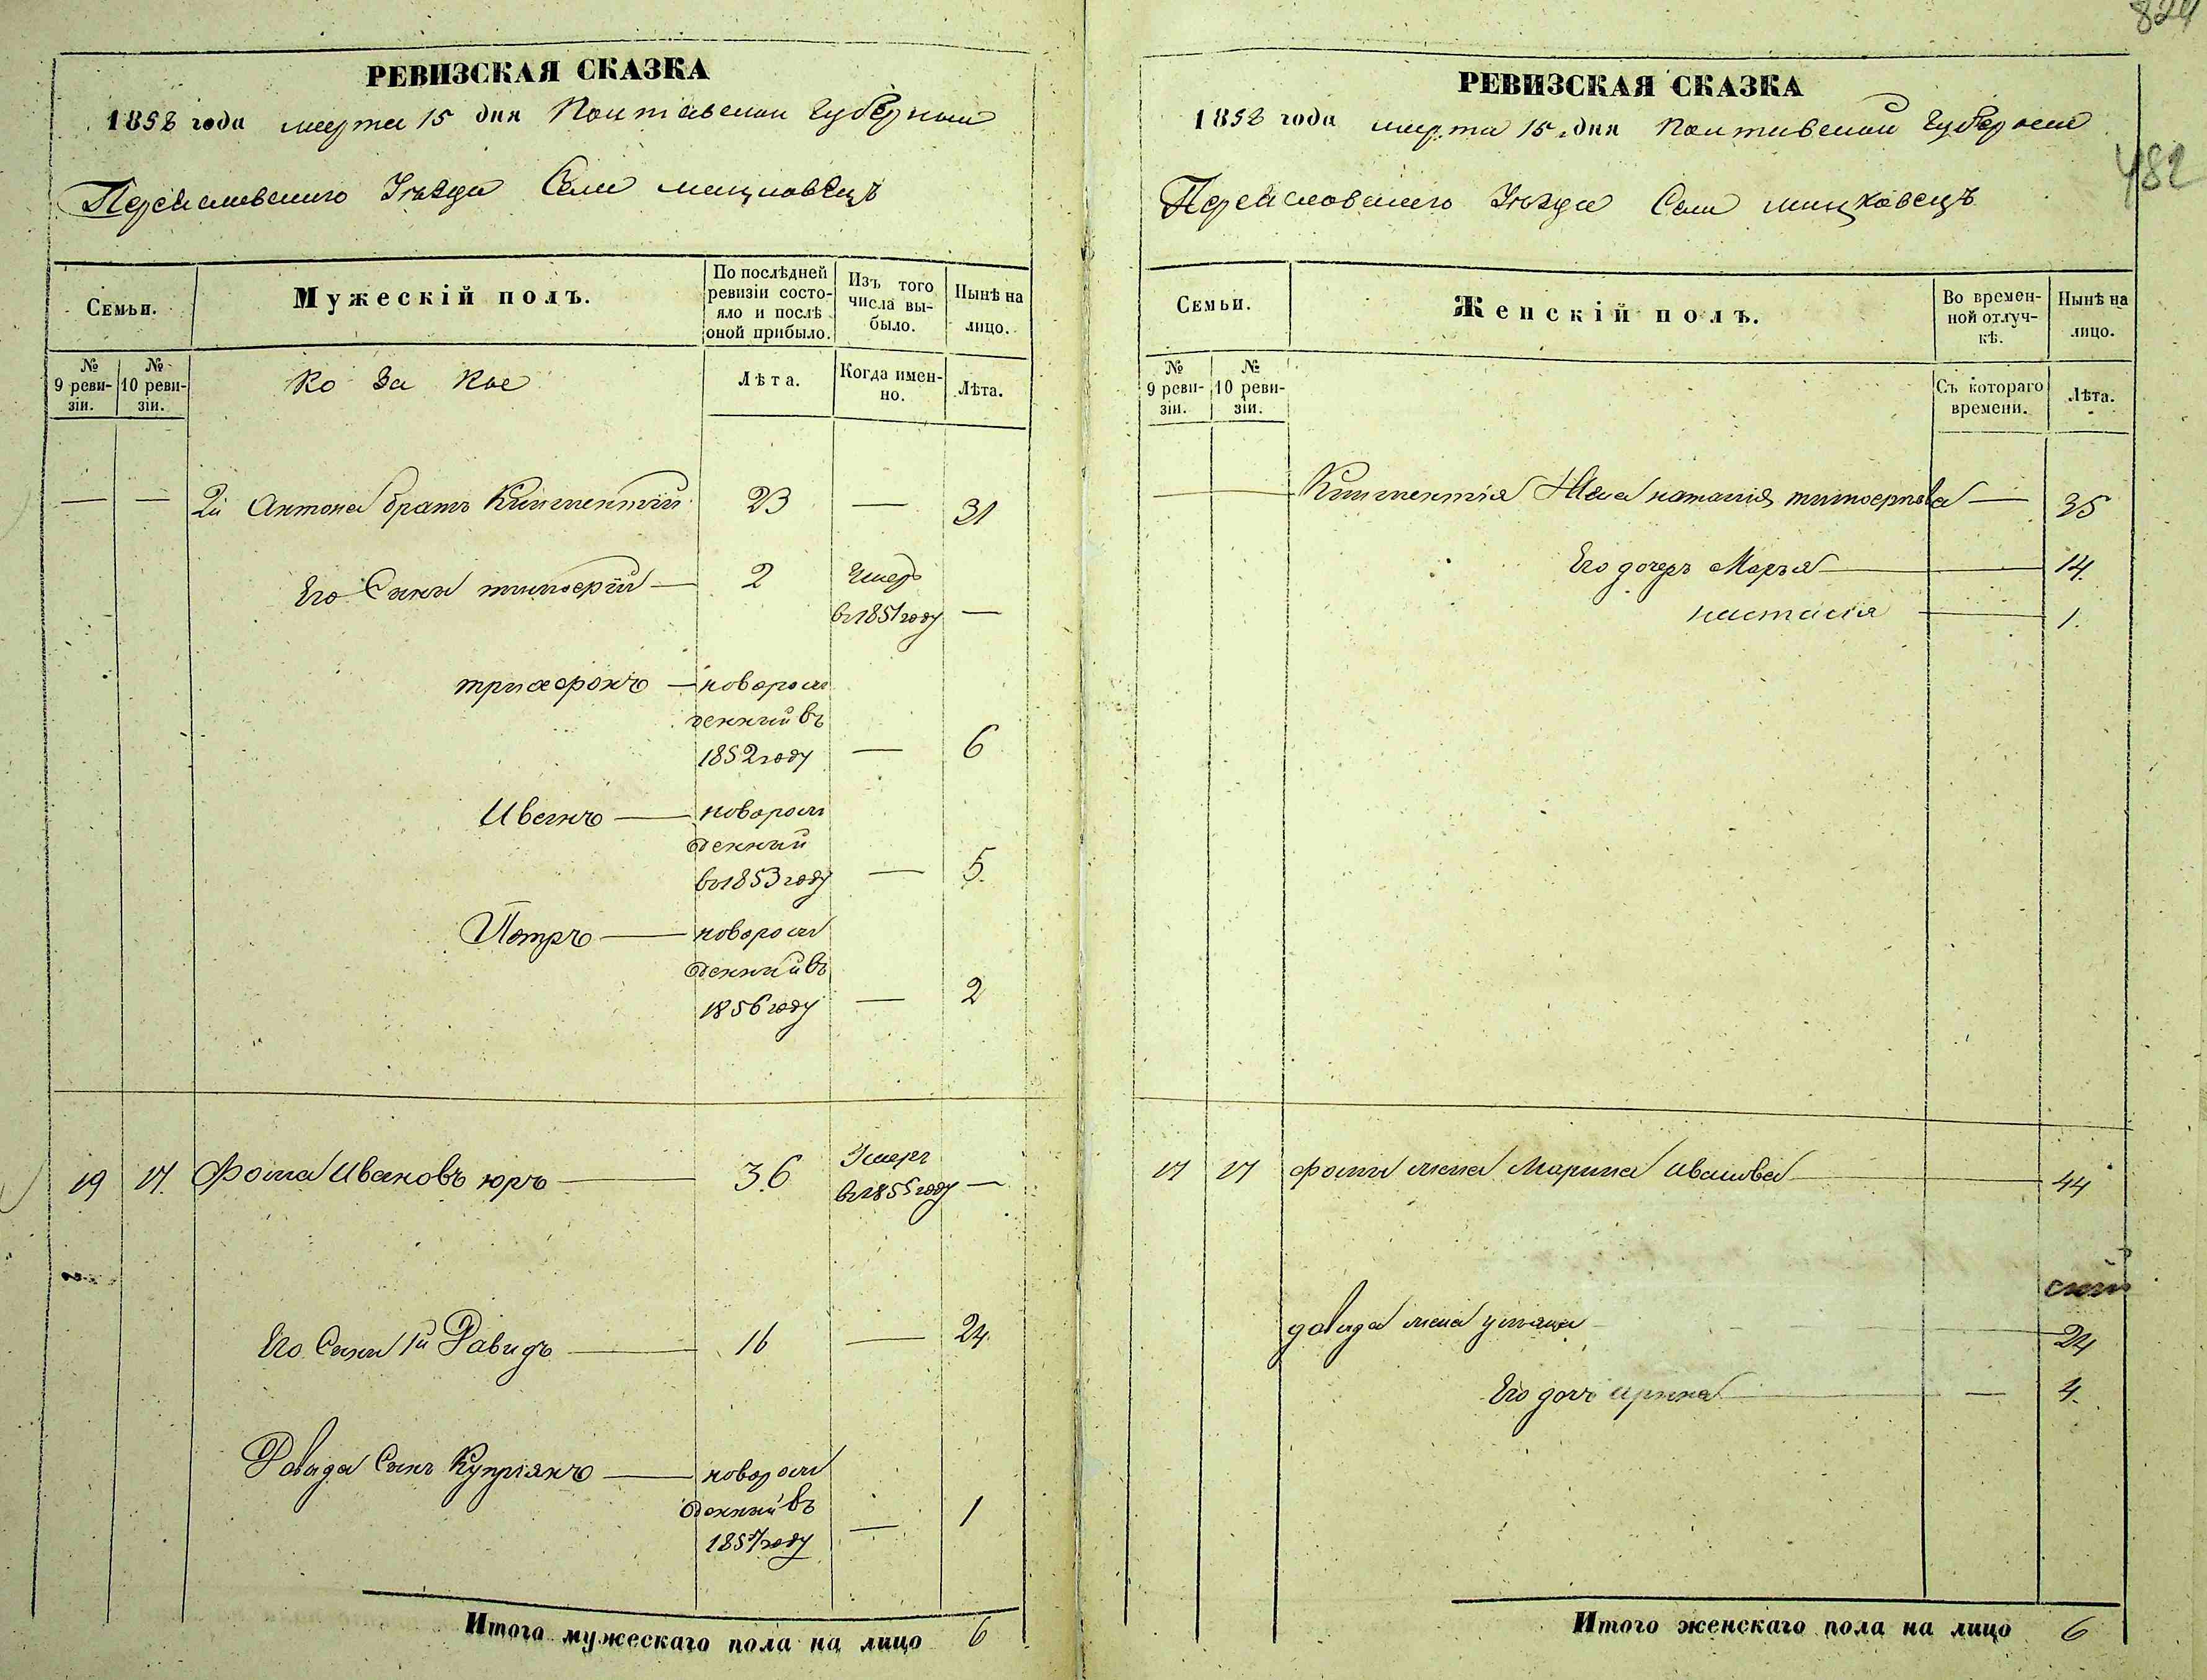 РЕВИЗСКАЯ СКАЗКА
1858 года марта 15 дня Полтавской Губернии
Переяславского Уезда Села мацковецъ
Семьи.
Мужескій полъ.
По послѣдней ревизіи состо-
яло и послѣ
оной прибыло.
Изъ того
числа вы-
было.
Нынѣ на
лицо.
№
9 реви-
зіи.
№
10 реви-
зіи.
Козаков
Лѣта.
Когда имен-
но.
Лѣта.
— — 2й Антона братъ Климентий 23 — 31
Его Сынъ тимофрий — 2 Умеръ
въ 1851 году —
трихфонъ — новорож
денный въ
1852 году — 6
Иванъ — новорож
денный
въ 1853 году — 5.
Петръ — новорож
денный въ
1856 году — 2
19 17. Фома Ивановъ юръ — 36 Умеръ
въ 1855 году —
Его Сынъ 1й Давидъ — 16 — 24
Давида Сынъ Купріянъ — новорож
денный въ
1857 году — 1
Итого мужескаго пола на лицо 6
824
482
РЕВИЗСКАЯ СКАЗКА
1858 года марта 15 дня Полтавской Губернии
Переяславского Уезда Села мацковецъ
Семьи.
Женскій полъ.
Во времен-
ной отлуч-
кѣ.
Нынѣ на
лицо.
№
9 реви-
зіи.
№
10 реви-
зіи.
Съ котораго
времени.
Лѣта.
— Климентія Жена наталія тимоерѣва — 35
Его дочерь Марья — 14.
настасія — 1.
17 17 фомы жена Марина Иванова — 44
давида жена уляна — 24
Его дочь ирина — — 4.
Итого женскаго пола на лицо 6